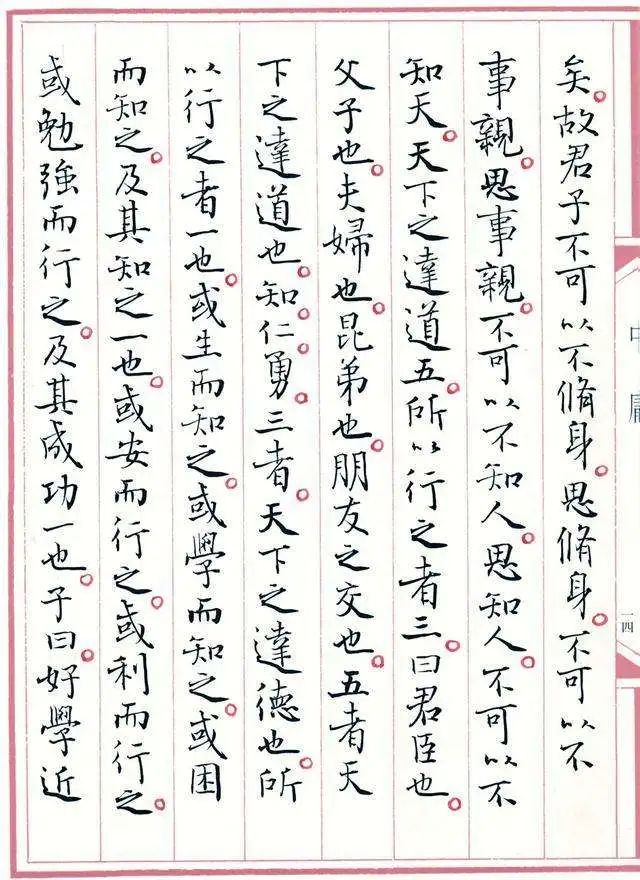 中庸
一四
矣。故君子不可以不脩身。思脩身。不可以不
事親。思事親。不可以不知人思知人。不可以不
知天。天下之達道五。所以行之者三。曰君臣也。
父子也。夫婦也。昆弟也。朋友之交也。五者天
下之達道也。知。仁。勇。三者。天下之達德也。所
以行之者一也。或生而知之。或學而知之。或困
而知之。及其知之一也。或安而行之。或利而行之。
或勉強而行之。及其成功一也。子曰。好學近